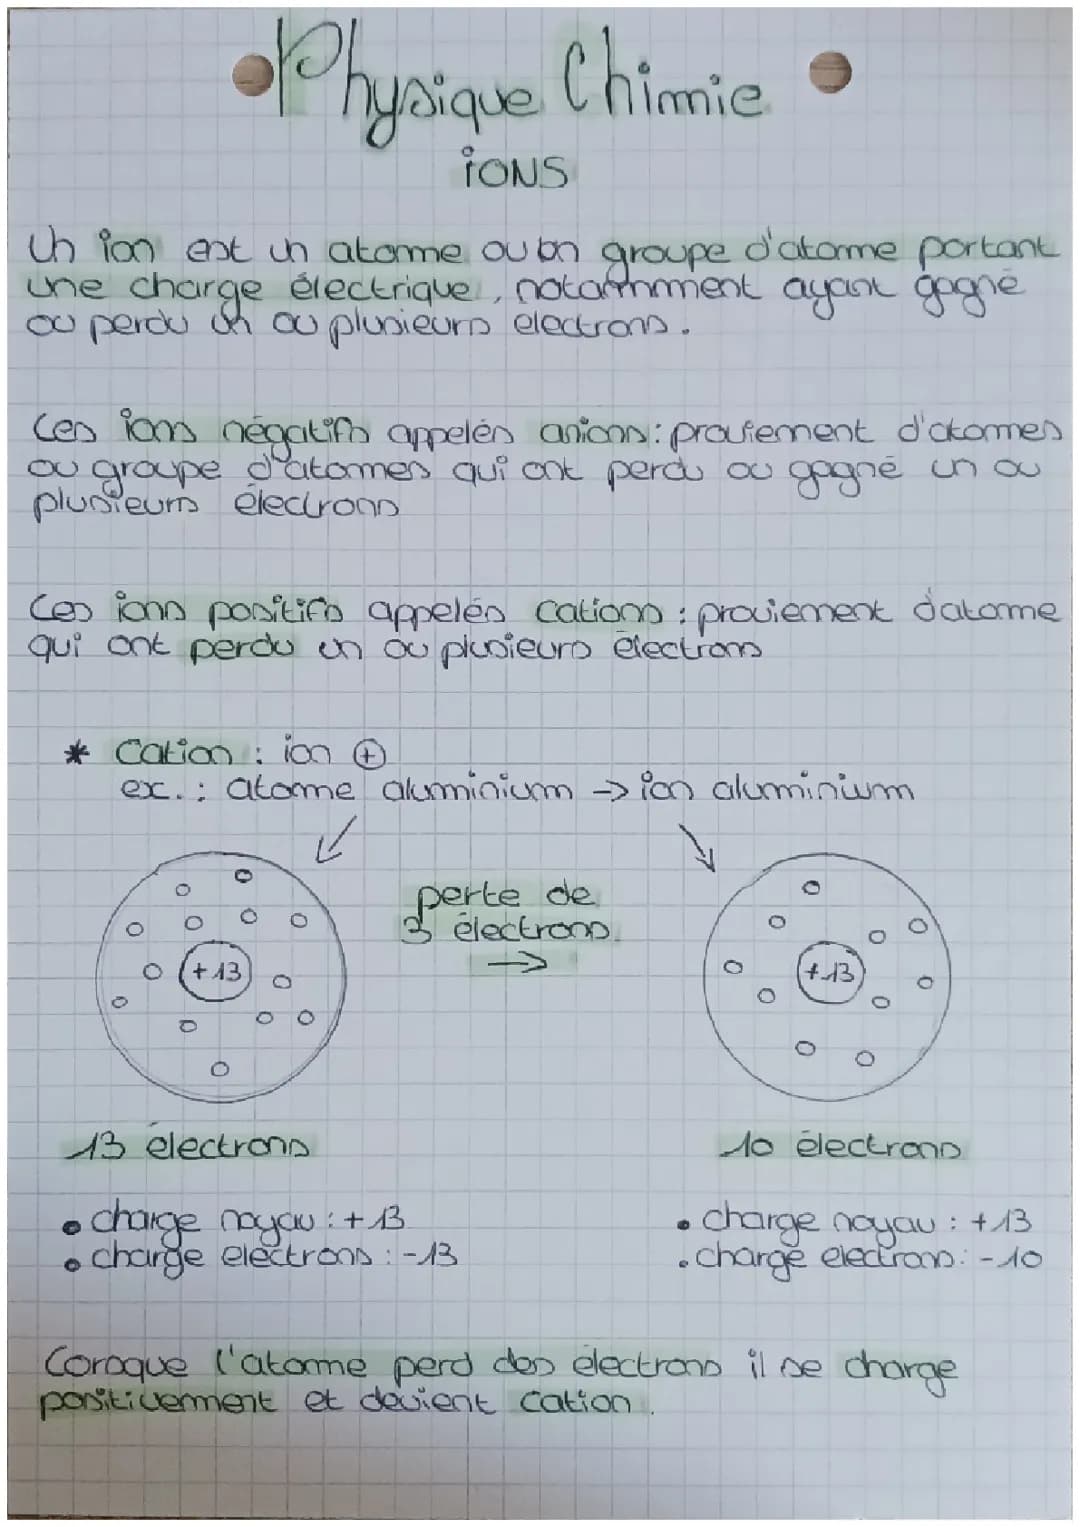 Physique Chimie
iONS
Un ion est un atome ou un groupe d'atome portant
une charge électrique, notamment ayant gagné
ou perdu un ou plusieurs electrons.
Les ions négatifs appelés anions: proviement d'atomes
ou groupe d'atomes qui ont perdu ou gagné un ou
plusieurs électrons
Les ions positifs appelés Cations : proviement d'atome
qui ont perdu un ou plusieurs électrons
* Cation : ion ⊕
ex. : atome aluminium → ion aluminium
perte de
3 électrons.
→
+13
+13
13 électrons
10 électrons
• charge noyau : +13
• charge noyau : +13
• charge electrons : -13
• charge electrons : -10
Lorsque l'atome perd des électrons il se charge
positivement et devient cation.